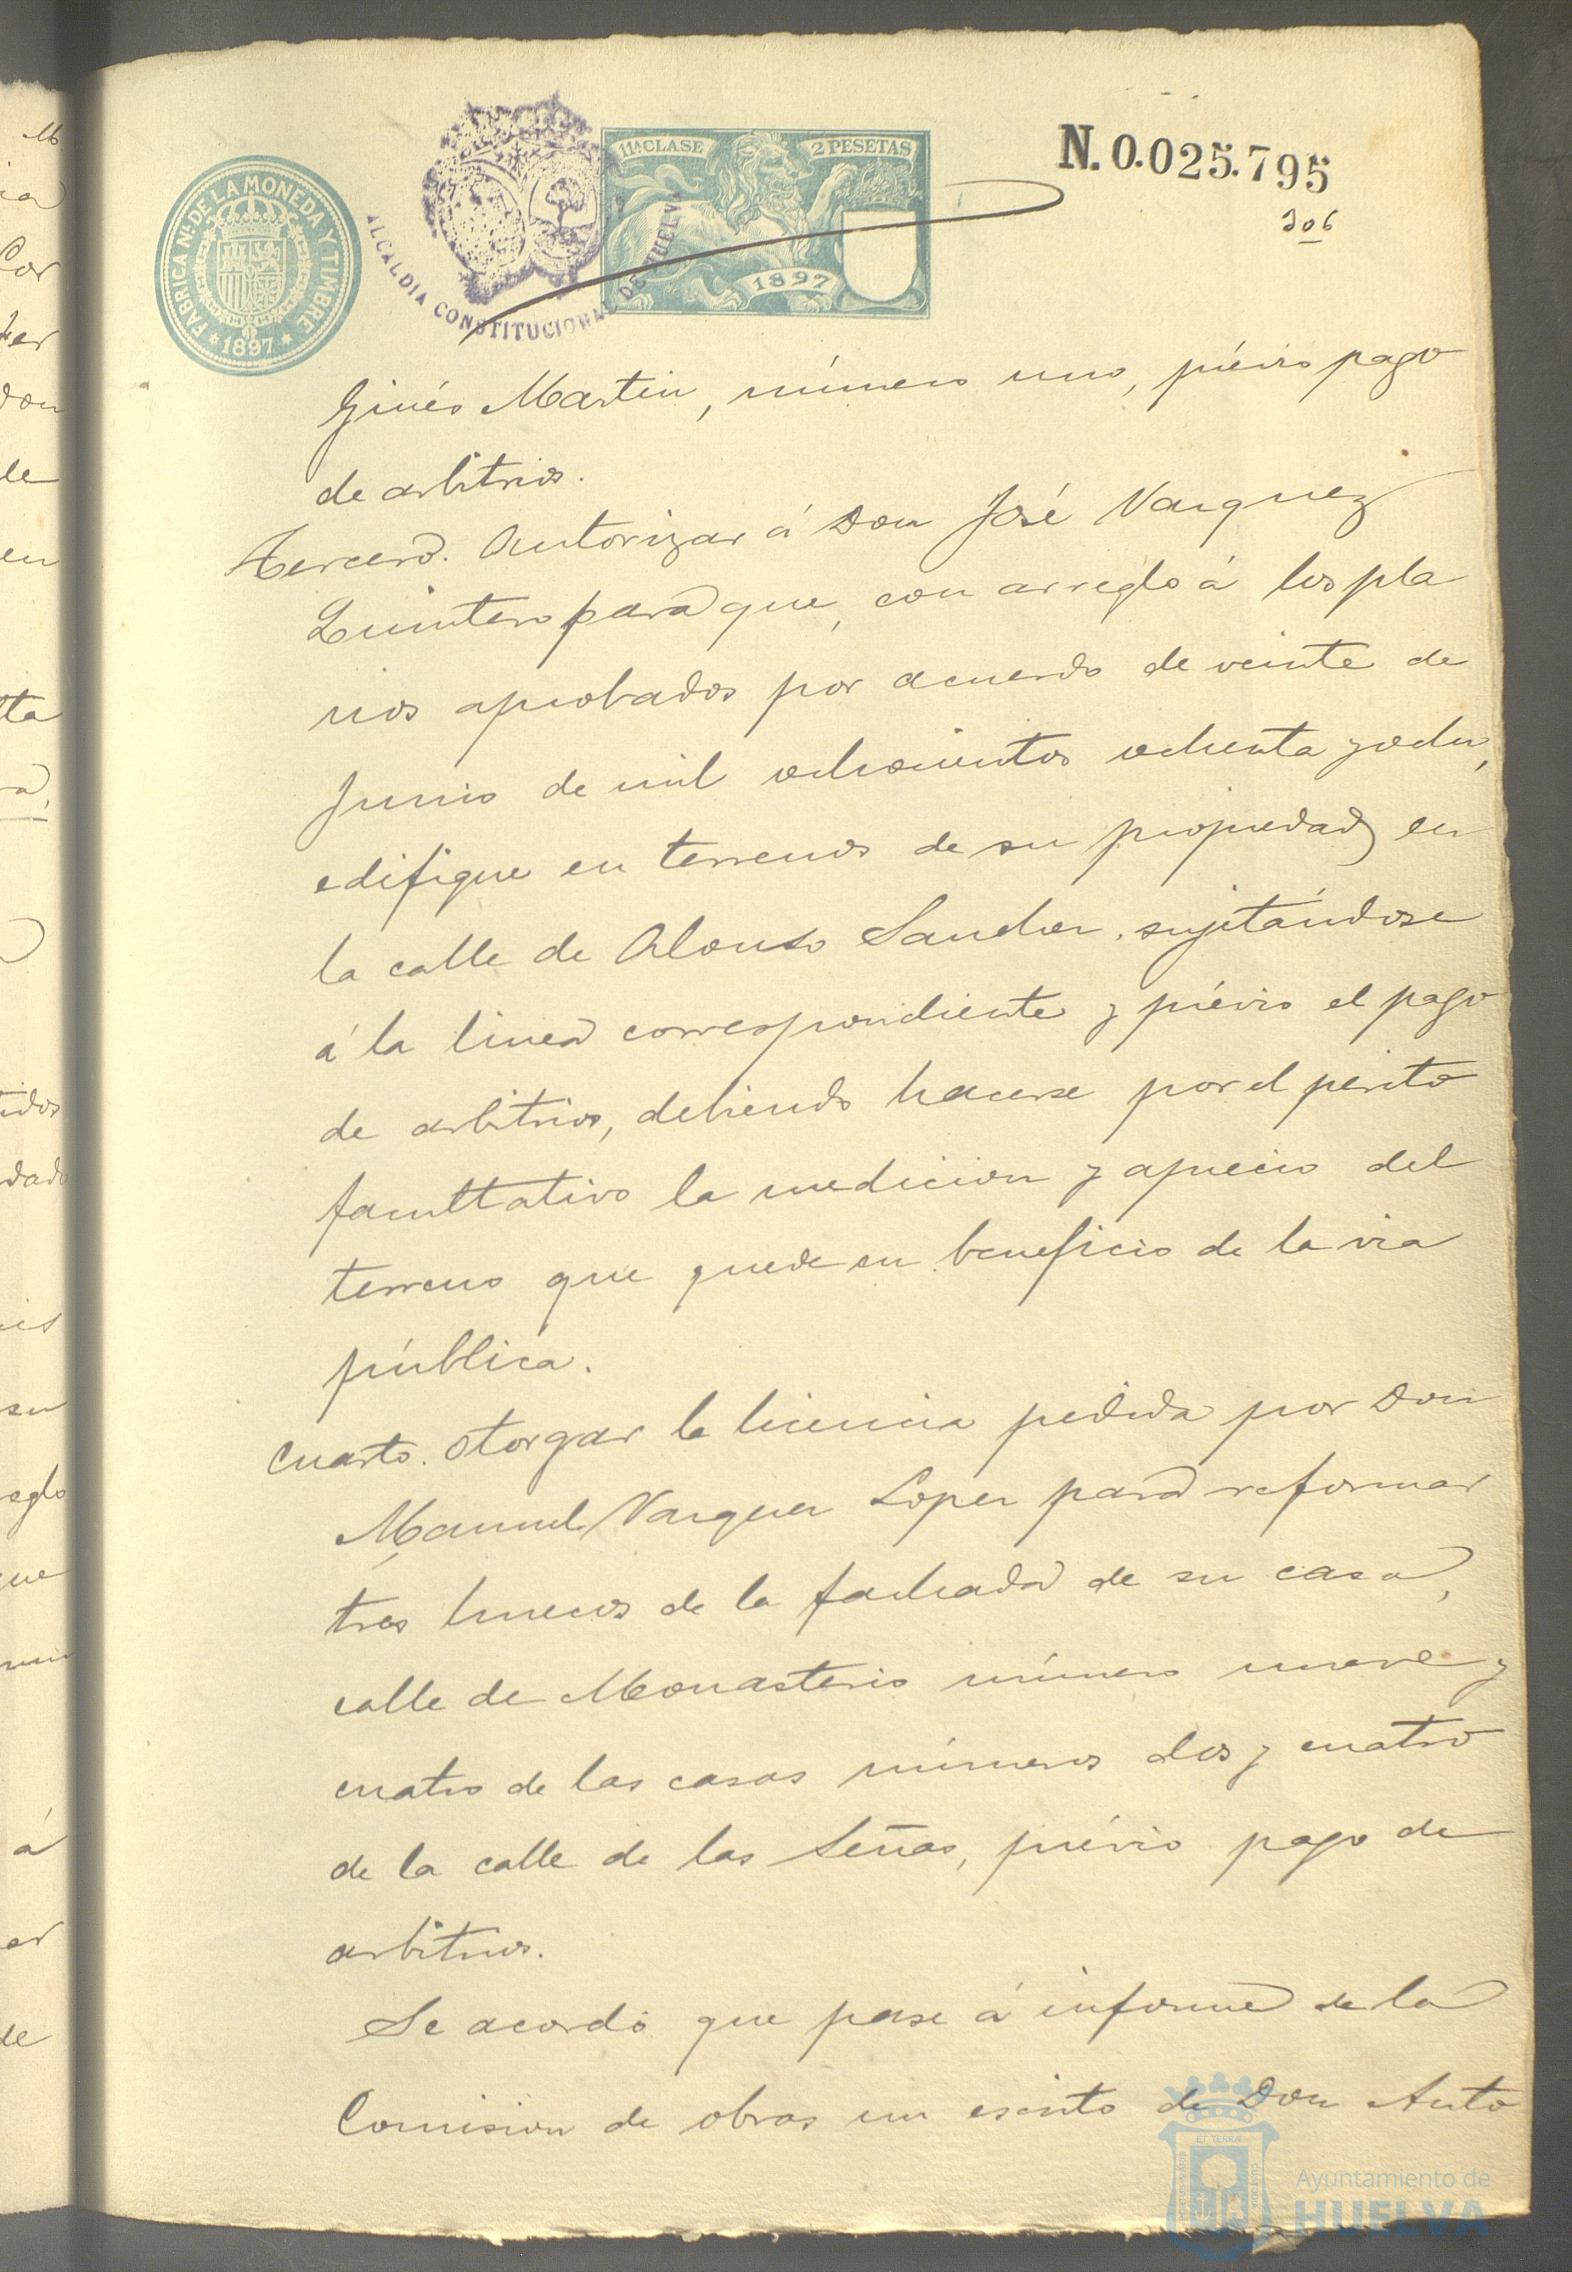 N. 0.025.795
306
11ª CLASE
2 PESETAS
1897
FABRICA Nª. DE LA MONEDA Y TIMBRE
* 1897 *
ALCALDIA CONSTITUCIONAL DE HUELVA
Ginés Martin, número uno, prévio pago
de arbitrios.
Tercero. Autorizar á Don José Vazquez
Quintero para que, con arreglo á los pla
nos aprobados por acuerdo de veinte de
Junio de mil ochocientos ochenta y ocho,
edifique en terrenos de su propiedad en
la calle de Alonso Sanchez, sujetándose
á la linea correspondiente y prévio el pago
de arbitrios, debiendo hacerse por el perito
facultativo la medicion y aprecio del
terreno que quede en beneficio de la via
pública.
Cuarto. Otorgar la licencia pedida por Don
Manuel Vazquez Lopez para reformar
tres huecos de la fachada de su casa,
calle de Monasterio número nueve y
cuatro de las casas números dos y cuatro
de la calle de las Señas, prévio pago de
arbitrios.
Se acordó que pase á informe de la
Comision de obras un escrito de Don Anto
Ayuntamiento de
HUELVA